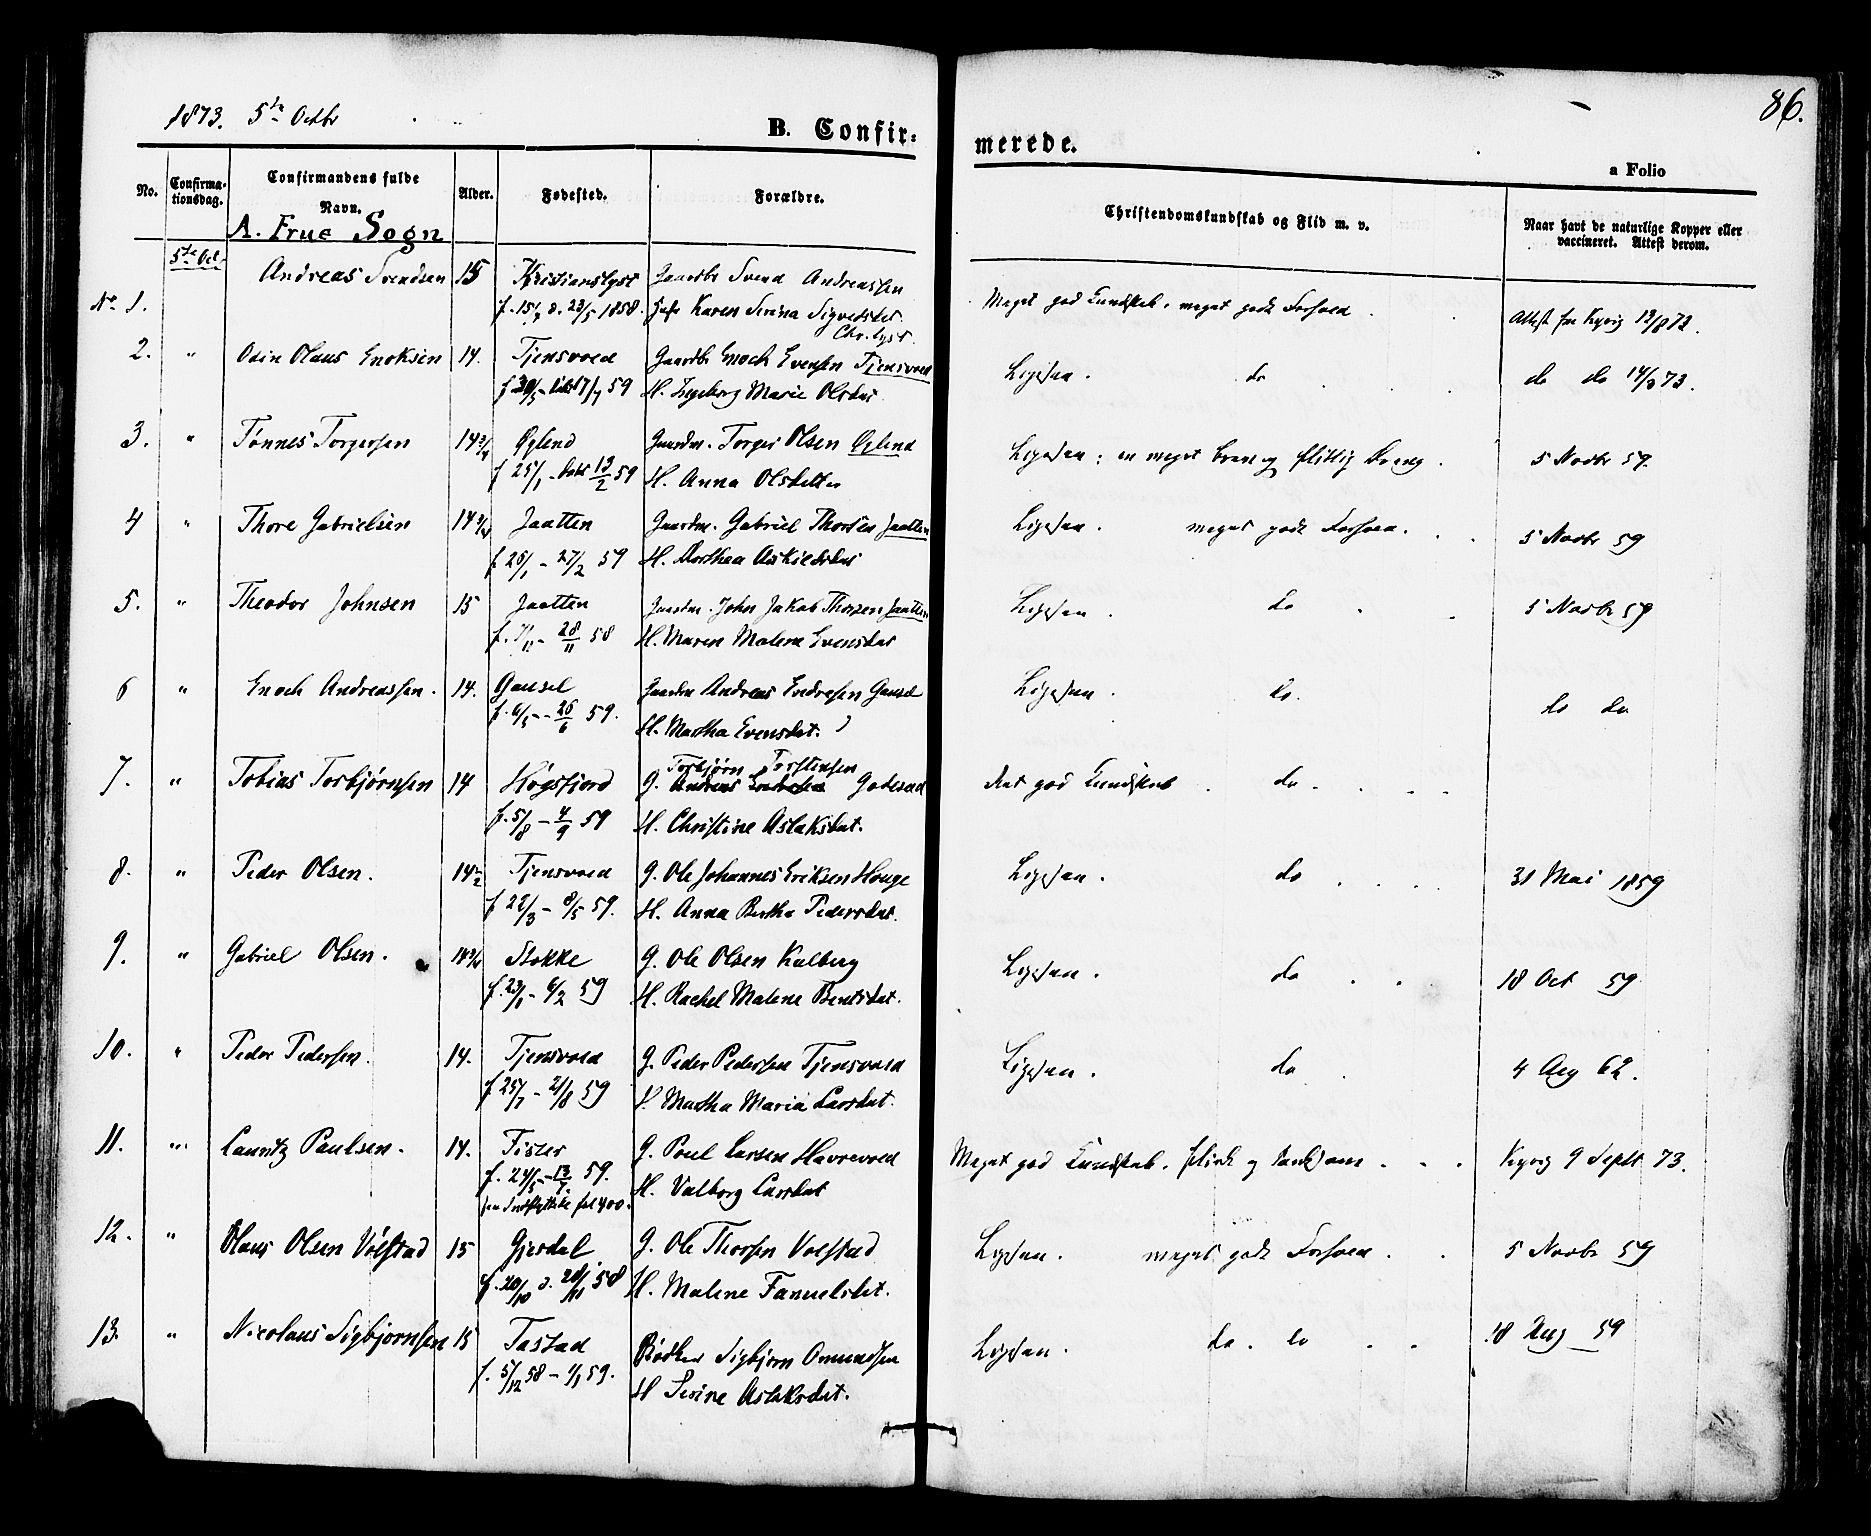 1873. 5te Octbr
86.
B. Confir-
merede.
a Folio
No.
Confirma-
tionsdag.
Confirmandens fulde
Navn.
Alder.
Fødested.
Forældre.
Christendomskundskab og Flid m. v.
Naar havt de naturlige Kopper eller
vaccineret. Attest derom.
A. Frue Sogn
5te Oct.
No 1. Andreas Svendsen 15 Kristianslyst Gaardbr Svend Andreassen
f. 15/4 d. 23/5 1858. Karen Serina Sigvedsdtr.
Chr.lyst.
Meget god Kundskab, meget godt Forhold.
Attest fra Kyvig 12/8 72.
2. " Odin Olaus Enoksen 14. Tjensvold Gaardbr Enoch Evensen Tjensvold
59 H. Ingeborg Marie Olsdat.
Ligesaa. do
do do 14/9 73.
3. " Tønnes Torgersen 14 3/4 Øglend Gaardm. Torger Olsen Øglend
f 25/1 - døbt 13/2 59 H. Anna Olsdatter
Ligesaa; en meget brav og flittig Dreng.
5 Novbr 59.
4 " Thore Gabrielsen 14 3/4 Jaatten Gaardm. Gabriel Thorsen Jaatten
f 26/1 - 27/2 59 H. Dorthea Askieldsdat
Ligesaa. meget godt Forhold.
5 Novbr 59
5. " Theodor Johnsen 15 Jaatten Gaardm. John Jakob Thorsen Jaatten
f. 7/11 - 28/11 58 H. Maren Malena Evensdat
Ligesaa. do
5 Novbr 59
6 " Enoch Andreassen. 14. Gausel Gaardm Andreas Endresen Gausel
f. 6/5 - 26/6 59. H. Martha Evensdat.
Ligesaa. do.
do do
7. " Tobias Torbjørnsen 14 Høgsfjord G. Torbjørn Torstensen
Andreas Endresen
f. 5/8 - 4/9 59 H. Christine Aslaksdat.
god Kundskab. do.
8. " Peder Olsen. 14 1/2 Tjensvold G. Ole Johannes Eriksen Houge
f 22/3 - 8/5 59. H. Anna Bertha Pedersdat.
Ligesaa. do
31 Mai 1859
9. " Gabriel Olsen. 14 3/4 Stokke G. Ole Olsen Kalberg
f. 23/1 - 6/2 59 H. Rachel Malene Bentsdat.
Ligesaa. do
18 Oct 59
10. " Peder Pedersen. 14. Tjensvold G. Peder Pedersen Tjensvold
f 25/7 - 21/8 59 H. Martha Maria Larsdat.
Ligesaa. do
4 Aug 62.
11. " Lauritz Paulsen. 14. Fister G. Poul Larsen Havrevold
f. 24/5 - 13/7 59. H. Valborg Larsdat
400.
Meget god Kundskab, flink og
Kyvig 9 Septb 73.
12. " Olaus Olsen Volstad 15 Gjesdal G. Ole Thorsen Volstad
f. 20/10 d. 28/11 58 H. Malene Fanuelsdat.
Ligesaa. meget godt Forhold.
5 Novbr 59
13. " Nicolaus Sigbjørnsen 15 Tastad Bødker Sigbjørn Omundsen
f. 5/12 58 - 1/1 59. H Serine Aslaksdat.
Ligesaa. do. do
18 Aug 59